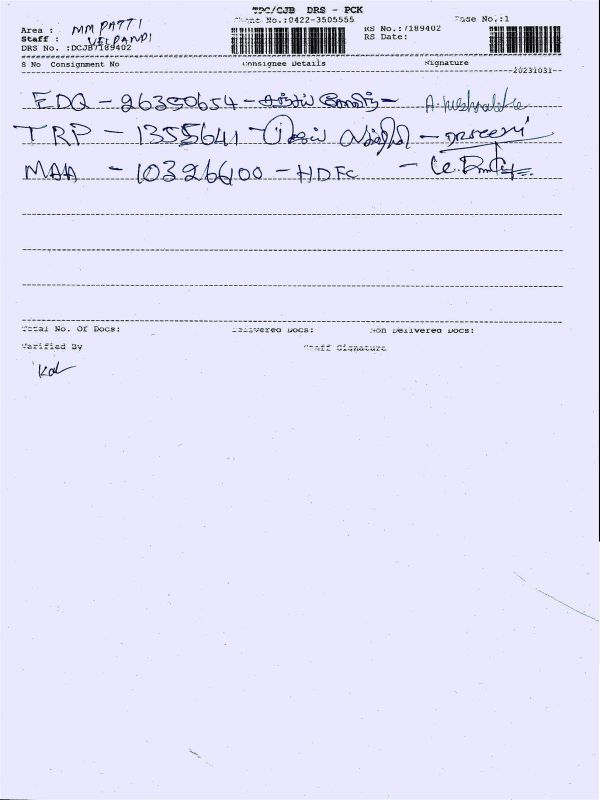 TPC/CJB DRS - PCK
Phone No.:0422-3505555 Page No.:1
Area : MM PATTI
Staff : VELPANDI
DRS No. :DCJB7189402
RS No.:7189402
RS Date:
S No Consignment No Consignee Details Signature
20231031
EDQ - 26390654 -
TRP - 1355641 -
MAA - 10326600 - HDFC -
Total No. Of Docs: Delivered Docs: Non Delivered Docs:
Varified By Staff Signature